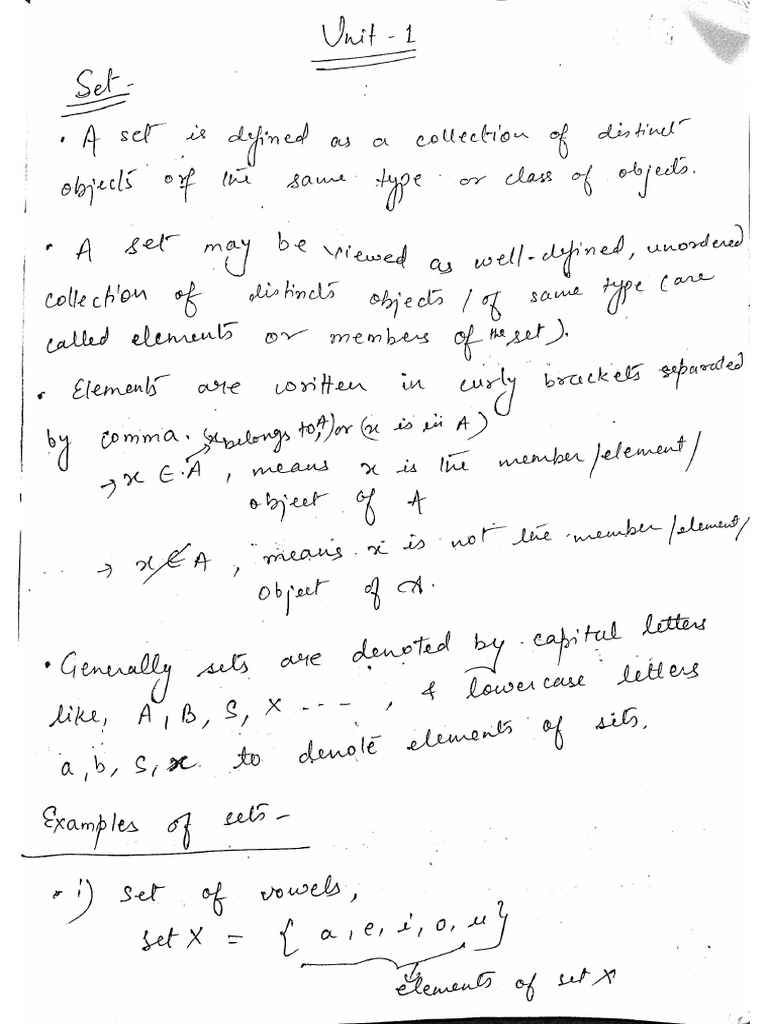 Unit - 1
Set -
• A set is defined as a collection of distinct
objects of the same type or class of objects.
• A set may be viewed as well-defined, unordered
collection of distincts objects / of same type (are
called elements or members of the set).
• Elements are written in curly brackets separated
by comma. (x belongs to A) or (x is in A)
→ x ∈ A, means x is the member/element/
object of A
→ x ∉ A, means x is not the member/element/
object of A.
• Generally sets are denoted by capital letters
like, A, B, S, X ---, & lowercase letters
a, b, s, x to denote elements of sets.
Examples of sets -
• i) set of vowels,
set X = { a, e, i, o, u }
elements of set X